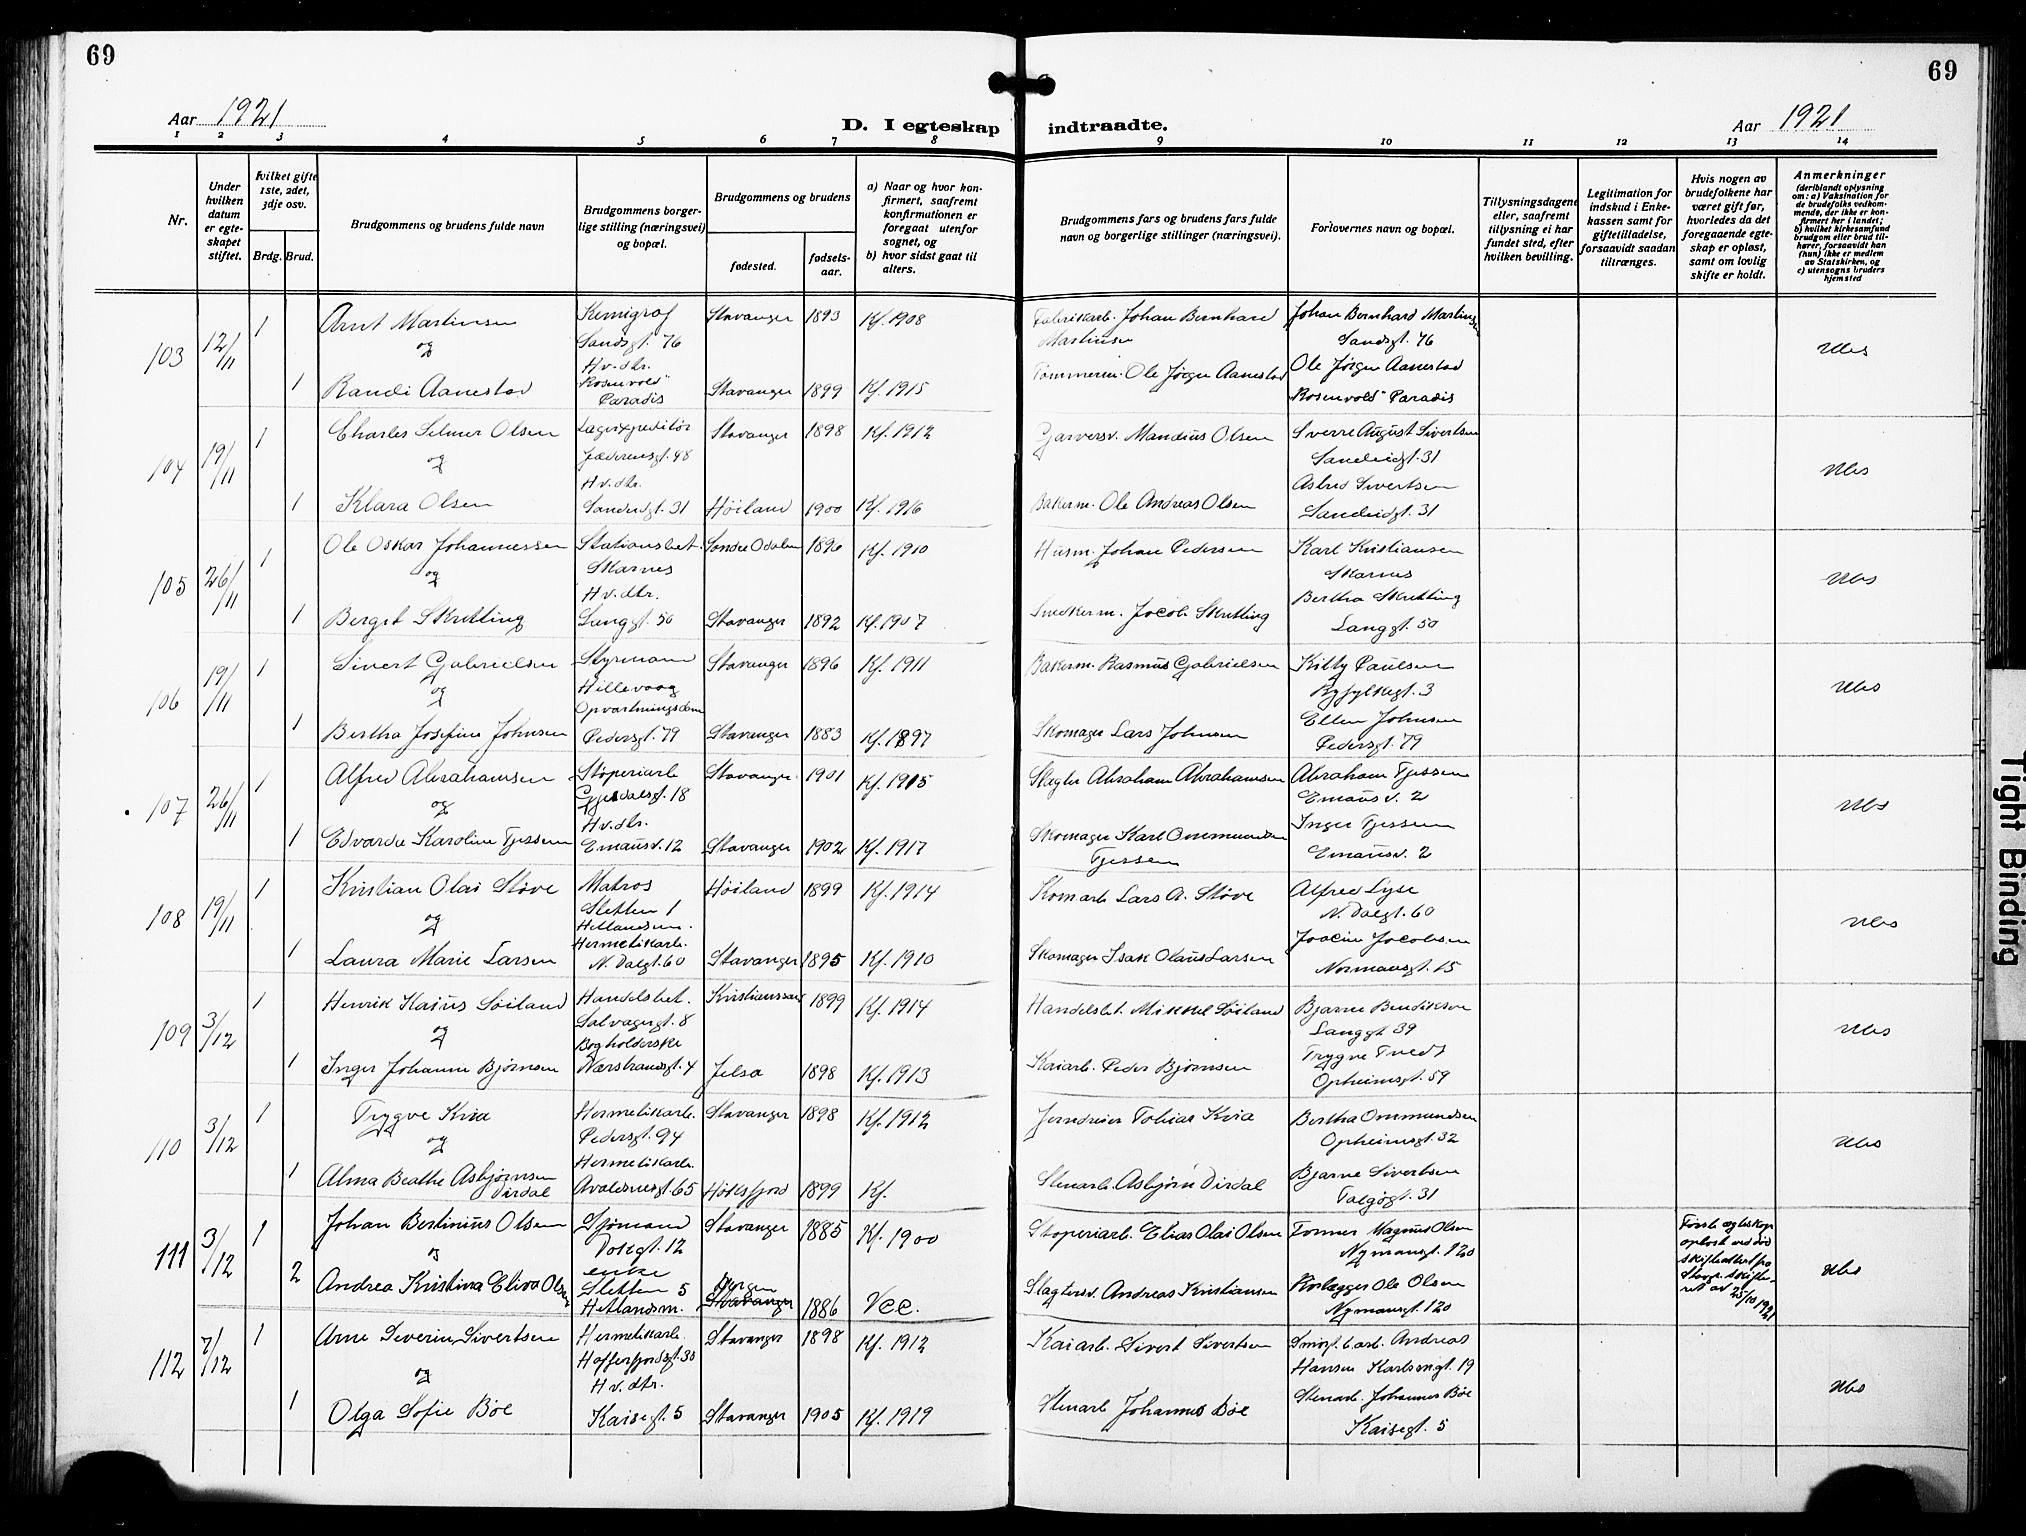 69
69
Aar 1921
D. I egteskap
indtraadte.
Aar 1921
1 2 3 4 5 6 7 8 9 10 11 12 13 14
Nr.
Under hvilken datum er egteskapet stiftet.
Hvilket gifte 1ste, 2det, 3dje osv.
Brdg. Brud.
Brudgommens og brudens fulde navn
Brudgommens borgerlige stilling (næringsvei) og bopæl.
Brudgommens og brudens
fødested.
fødselsaar.
a) Naar og hvor konfirmert, saafremt konfirmationen er foregaat utenfor sognet, og
b) hvor sidst gaat til alters.
Brudgommens fars og brudens fars fulde navn og borgerlige stillinger (næringsvei).
Forlovernes navn og bopæl.
Tillysningsdagene eller, saafremt tillysning ei har fundet sted, efter hvilken bevilling.
Legitimation for indskud i Enkekassen samt for giftetilladelse, forsaavidt saadan tiltrænges.
Hvis nogen av brudefolkene har været gift før, hvorledes da det foregaaende egteskap er opløst, samt om lovlig skifte er holdt.
Anmerkninger
(deriblandt oplysning om: a) Vaksination for de brudefolks vedkommende, der ikke er konfirmert her i landet; b) hvilket kirkesamfund brudgom eller brud tilhører, forsaavidt han (hun) ikke er medlem av Statskirken, og c) utensogns bruders hjemsted
103 12/11 1 Arnt Martinsen Kemigraf Stavanger 1893 Kf. 1908 Fabrikarb. Johan Bernhard Martinsen Johan Bernhard Martinsen
og Sandsgt. 76 Sandsgt. 76
H.v. dtr.
1 Randi Aanestad "Rosenvold" Paradis Stavanger 1899 Kf. 1915 Tømmerm. Ole Jørgen Aanestad Ole Jørgen Aanestad
Rosenvold" Paradis
104 19/11 1 Charles Selmer Olsen Stavanger 1898 Kf. 1912 Garversv. Mandius Olsen Sverre August Sivertsen
og Jædernesgt. 48 Sandeidgt. 31
H.v. dtr. Astrid Sivertsen
1 Klara Olsen Sandeidgt. 31 Høiland 1900 Kf. 1916 Bakerm. Ole Andreas Olsen Sandeidgt. 31
105 26/11 1 Ole Oskar Johannessen Stationsbet. Søndre Odalen 1896 Kf. 1910 Husm. Johan Pedersen Karl Kristiansen
og Skarnes Skarnes
H.v. dtr. Bertha Skretting
1 Bergit Skretting Langgt. 50 Stavanger 1892 Kf. 1907 Snedkerm. Jacob Skretting Langgt. 50
106 19/11 1 Sivert Gabrielsen Styrmand Stavanger 1896 Kf. 1911 Bakerm. Rasmus Gabrielsen Kitty Paulsen
og Hillevaag Ryfylkegt. 3
Opvartningsdame Ellen Johnsen
1 Bertha Josefine Johnsen Pedersgt. 79 Stavanger 1883 Kf. 1897 Skomager Lars Johnsen Pedersgt. 79
107 26/11 1 Alfred Abrahamsen Støperiarb Stavanger 1901 Kf. 1915 Slagter Abraham Abrahamsen Abraham Tjessem
og Gjesdalsgt. 18 Emausv. 2
H.v. dtr. Inger Tjessem
1 Edvarda Karoline Tjessem Emausv. 12 Stavanger 1902 Kf. 1917 Skomager Karl Ommundsen Tjessem Emausv. 2
108 19/11 1 Kristian Olai Støve Matros Høiland 1899 Kf. 1914 Komarb Lars A. Støve Alfred Lyse
og Sletten 1 N. Dalgt. 60
Hetlandsm.
Hermetikarb. Joacim Jacobsen
1 Laura Marie Larsen N. Dalgt. 60 Stavanger 1895 Kf. 1910 Skomager Isak Olaus Larsen Normansgt. 15
109 3/12 1 Henrik Kaius Søiland Handelsbet. Kristianssand 1899 Kf. 1914 Handelsbet. Mikkel Søiland Bjarne Bendiksen
og Salvagergt. 8 Langgt 39
Bogholderske Trygve Tvedt
1 Inger Johanne Bjørnsen Nærstrandsgt. 4 Jelsa 1898 Kf. 1913 Kaiarb. Peder Bjørnsen Opheimsgt. 59
110 3/12 1 Trygve Kvia Hermetikarb. Stavanger 1898 Kf. 1912 Jerndreier Tobias Kvia Bertha Ommundsen
og Pedersgt. 94 Opheimsgt. 32
Hermetikarb. Bjarne Sivertsen
1 Alma Beathe Asbjørnsen Dirdal Avaldsnesgt. 65 Høgsfjord 1899 Kf. Stenarb. Asbjørn Dirdal Talgøgt. 31
111 3/12 1 Johan Bertinius Olsen Sjømand Stavanger 1885 Kf. 1900 Støperiarb. Elias Olai Olsen Former Magnus Olsen
og Vokgt. 12 Nymansgt. 120
enke
2 Andrea Kristina Eliva Olsen Sletten 5 Hetlandsm. Bergen Stavanger 1886 Vcc. Slagtersv. Andreas Kristiansen Ole Olsen
Nymansgt. 120
Første egteskap opløst ved død skifteattest fra Stavgr. skifteret av 25/10 1921
112 7/12 1 Arne Severin Sivertsen Hermetikarb. Stavanger 1898 Kf. 1912 Kaiarb. Sivert Sivertsen Andreas
og Hafrsfjordsgt. 38 Hansen Karlsmgt. 19
H.v. dtr. Stenarb. Johannes Bøe
1 Olga Sofie Bøe Kaisegt. 5 Stavanger 1905 Kf. 1919 Stenarb Johannes Bøe Kaisegt. 5
Tight Binding